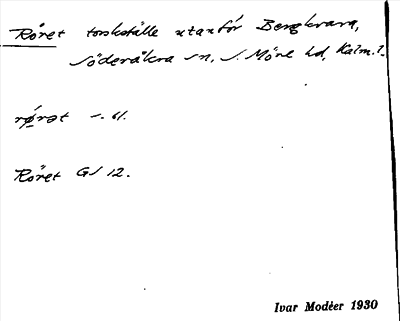 Röret torskställe utanför Bergkvara,
Söderåkra sn, S. Möre hd, Kalm. l.
Röret GS 12.
Ivar Modéer 1930